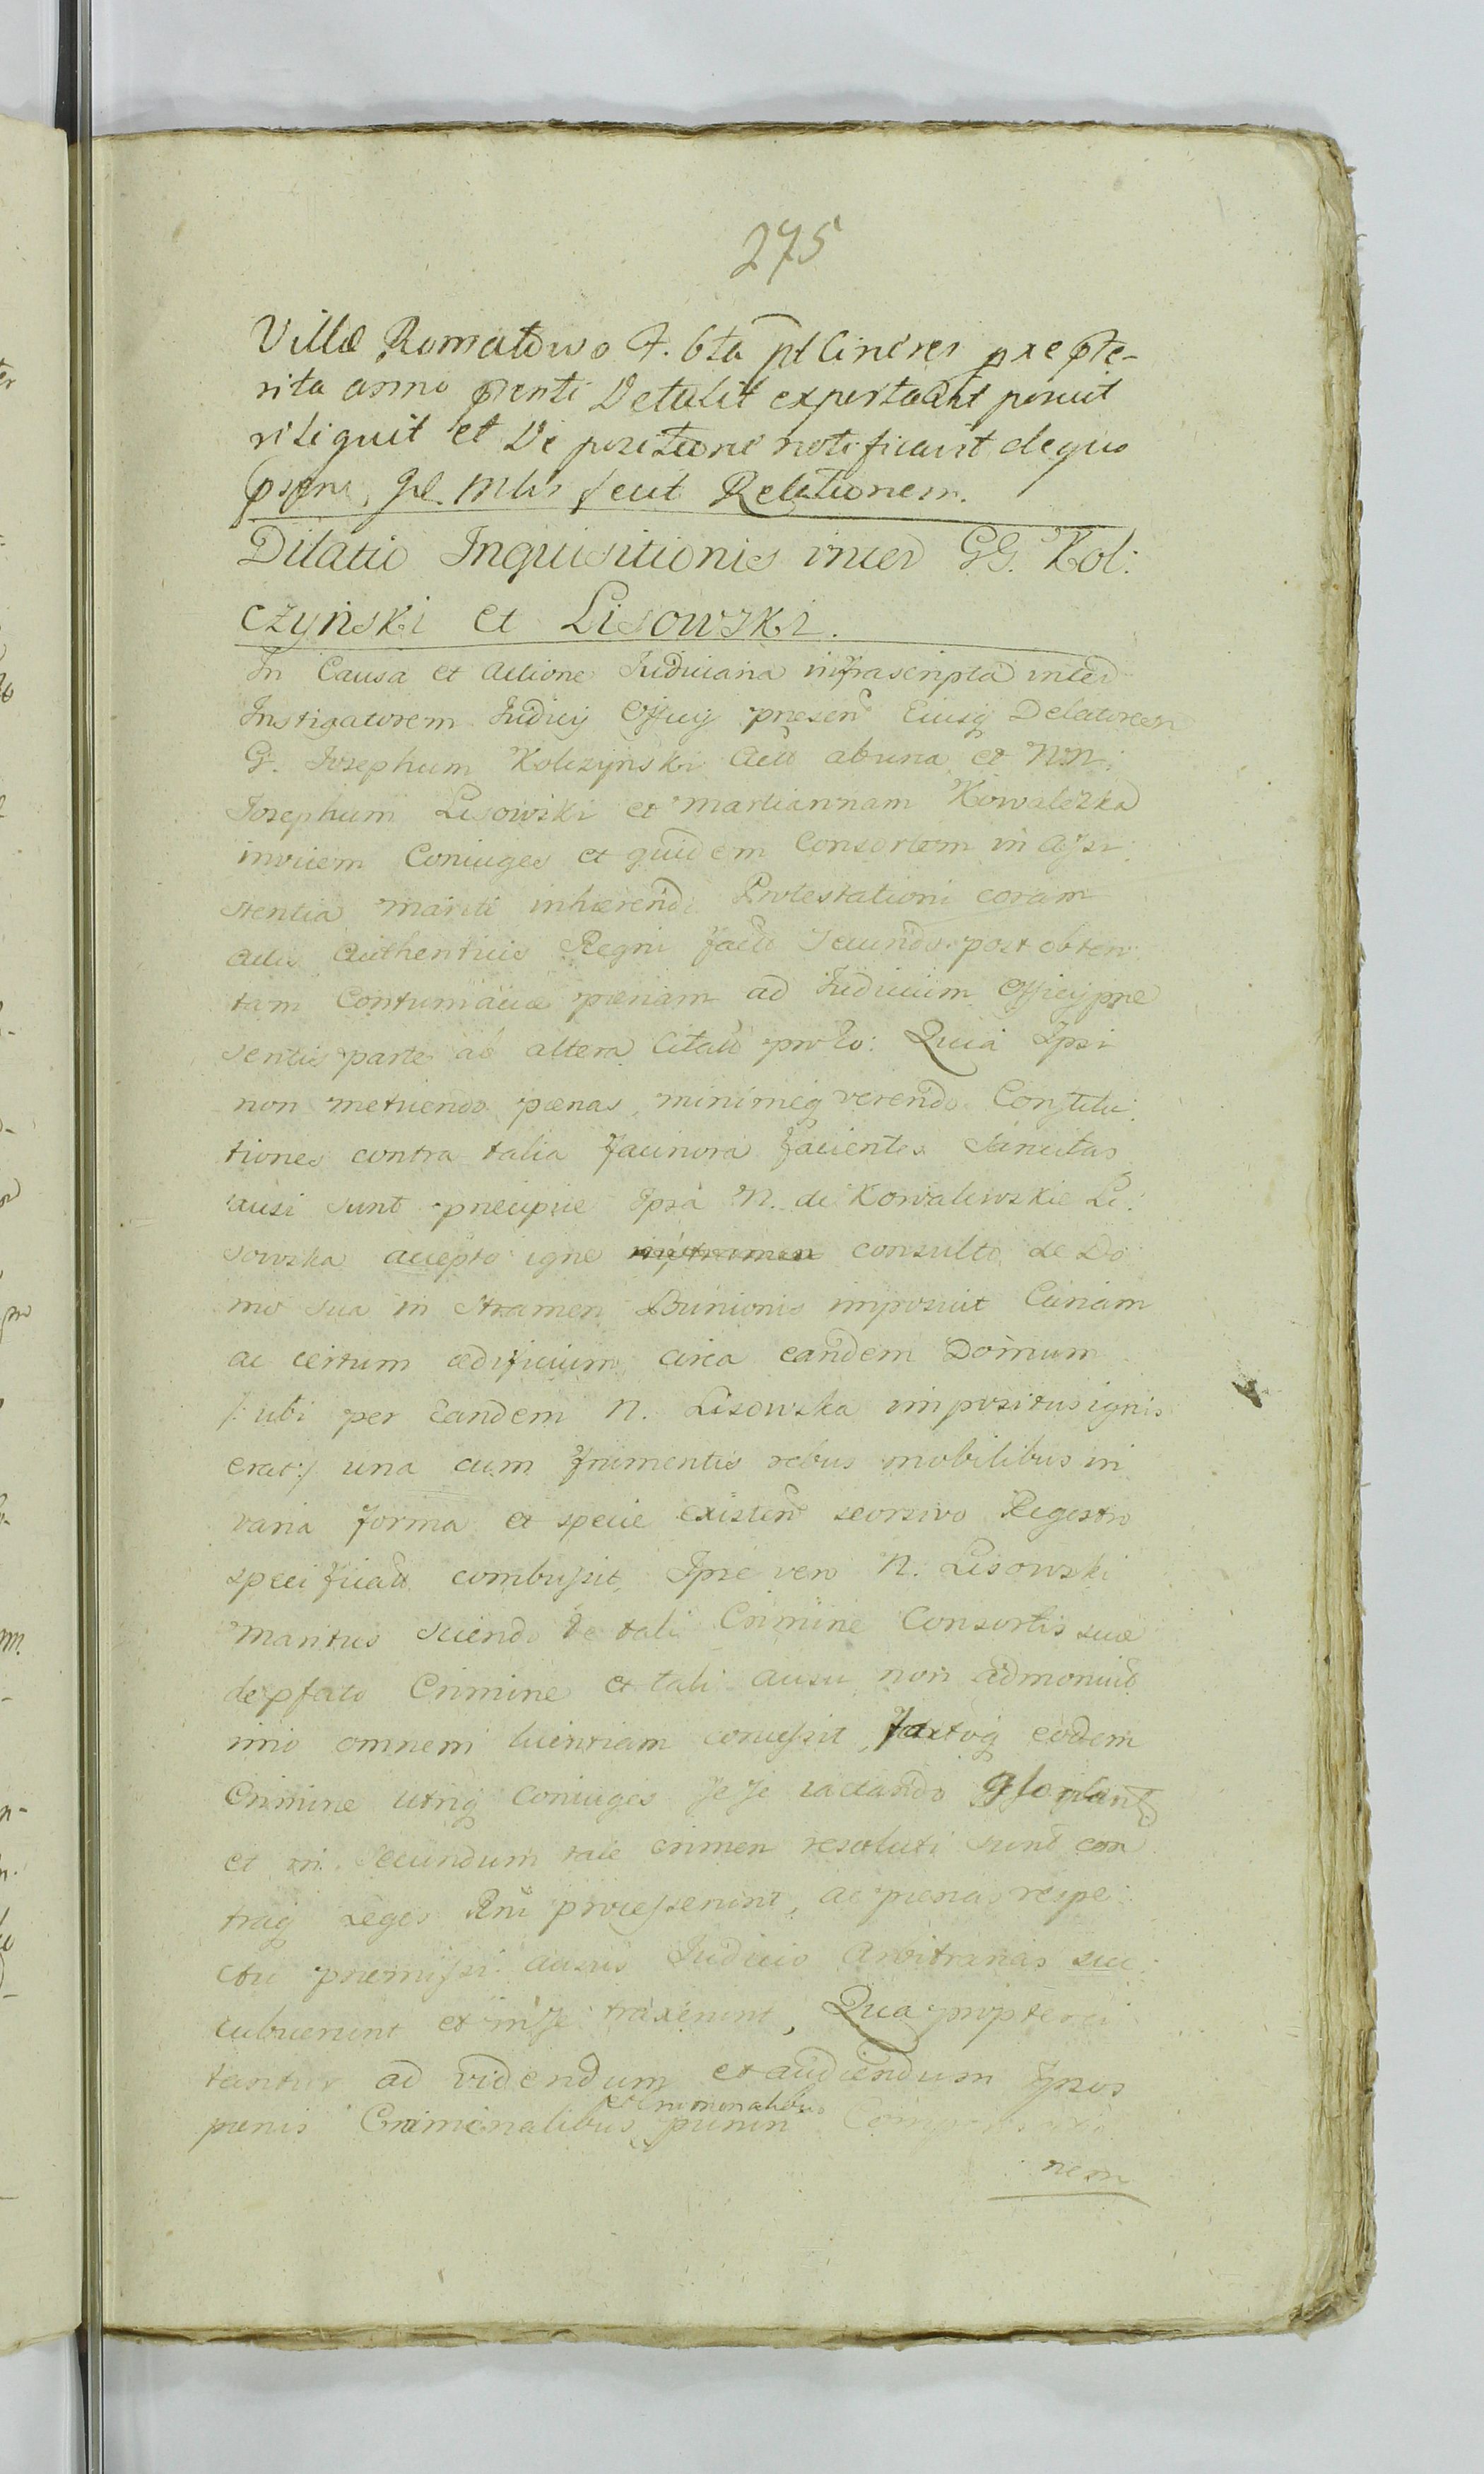 275
Villæ Romatowo F. 6ta pt Cineres præpte-
rita anno prnti Detulit exportavit posuit
reliquit et De positione notificavit de quo
prns, Gd. Mlis fecit Relationem.
Dilatio Inquisitionis inter GG. Kol:
czyński et Lisowski.
In Causa et Actione Judiciaria infrascripta inter
Instigatorem Judicij Officij præsen Eiusq Delatorem
G. Josephum Kolczyński Actō ab una et NN:
Josephum Lisowski et Martiannam Kowalezka
invicem Coniuges et quidem Consortem in Assi:
stentia Mariti inhærend. Protestationi coram
Actis Authenticis Regni factō secundo post obten:
tam Contumaciæ pænam ad Judicium Officij præ
sentis parte ab altera Citatō pro Eo: Quia Ipsi
non metuendo pænas, minimeq verendo Constitu:
tiones contra talia facinora facientes Sancitas
ausi sunt præcipue Ipsa N. de Kowalewskie Li:
sowska accepto igne consulto de Do
mo sua in stramen Brunionis imposuit Curiam
ac certum ædificium circa eandem Domum
/: ubi per Eandem N. Lisowska impositus ignis
erat :/ una cum frumentis rebus mobilibus in
varia forma et specie existen seorsivo Regestro
specificatō combussit, Ipse vero N. Lisowski
Maritus sciendo de tali Crimine Consortis suæ
de pfato Crimine et tali ausu non admonuit
imo omnem licentiam concessit, factoq eodem
Crimine utriq Coniuges sese iactando
et in secundum tale crimen resoluti sunt con
traq Leges Rni processerunt, ac pænas respe:
ctu præmissi ausus Judicio Arbitrarias suc:
cubuerunt et in se traxerunt, Qua propter ci
tantur ad videndum et audiendum Ipsos
pænis Criminalibus puniri
nem